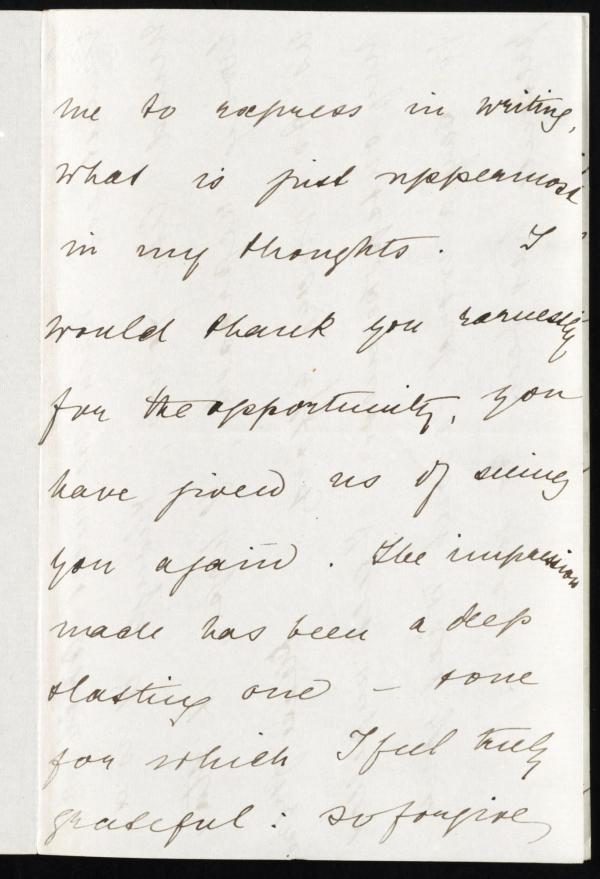 me to express in writing,
what is just uppermost
in my thoughts. I
would thank you earnestly
for the opportunity, you
have given us of seeing
you again. The impression
made has been a deep
& lasting one – & one
for which I feel truly
grateful: so forgive